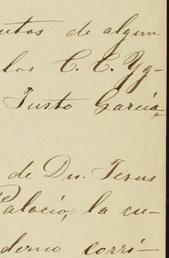 utos de algun
los C. C. Yg-
Justo Garcia,
de Dn. Jesus
Palacio, la cu-
derno corri-